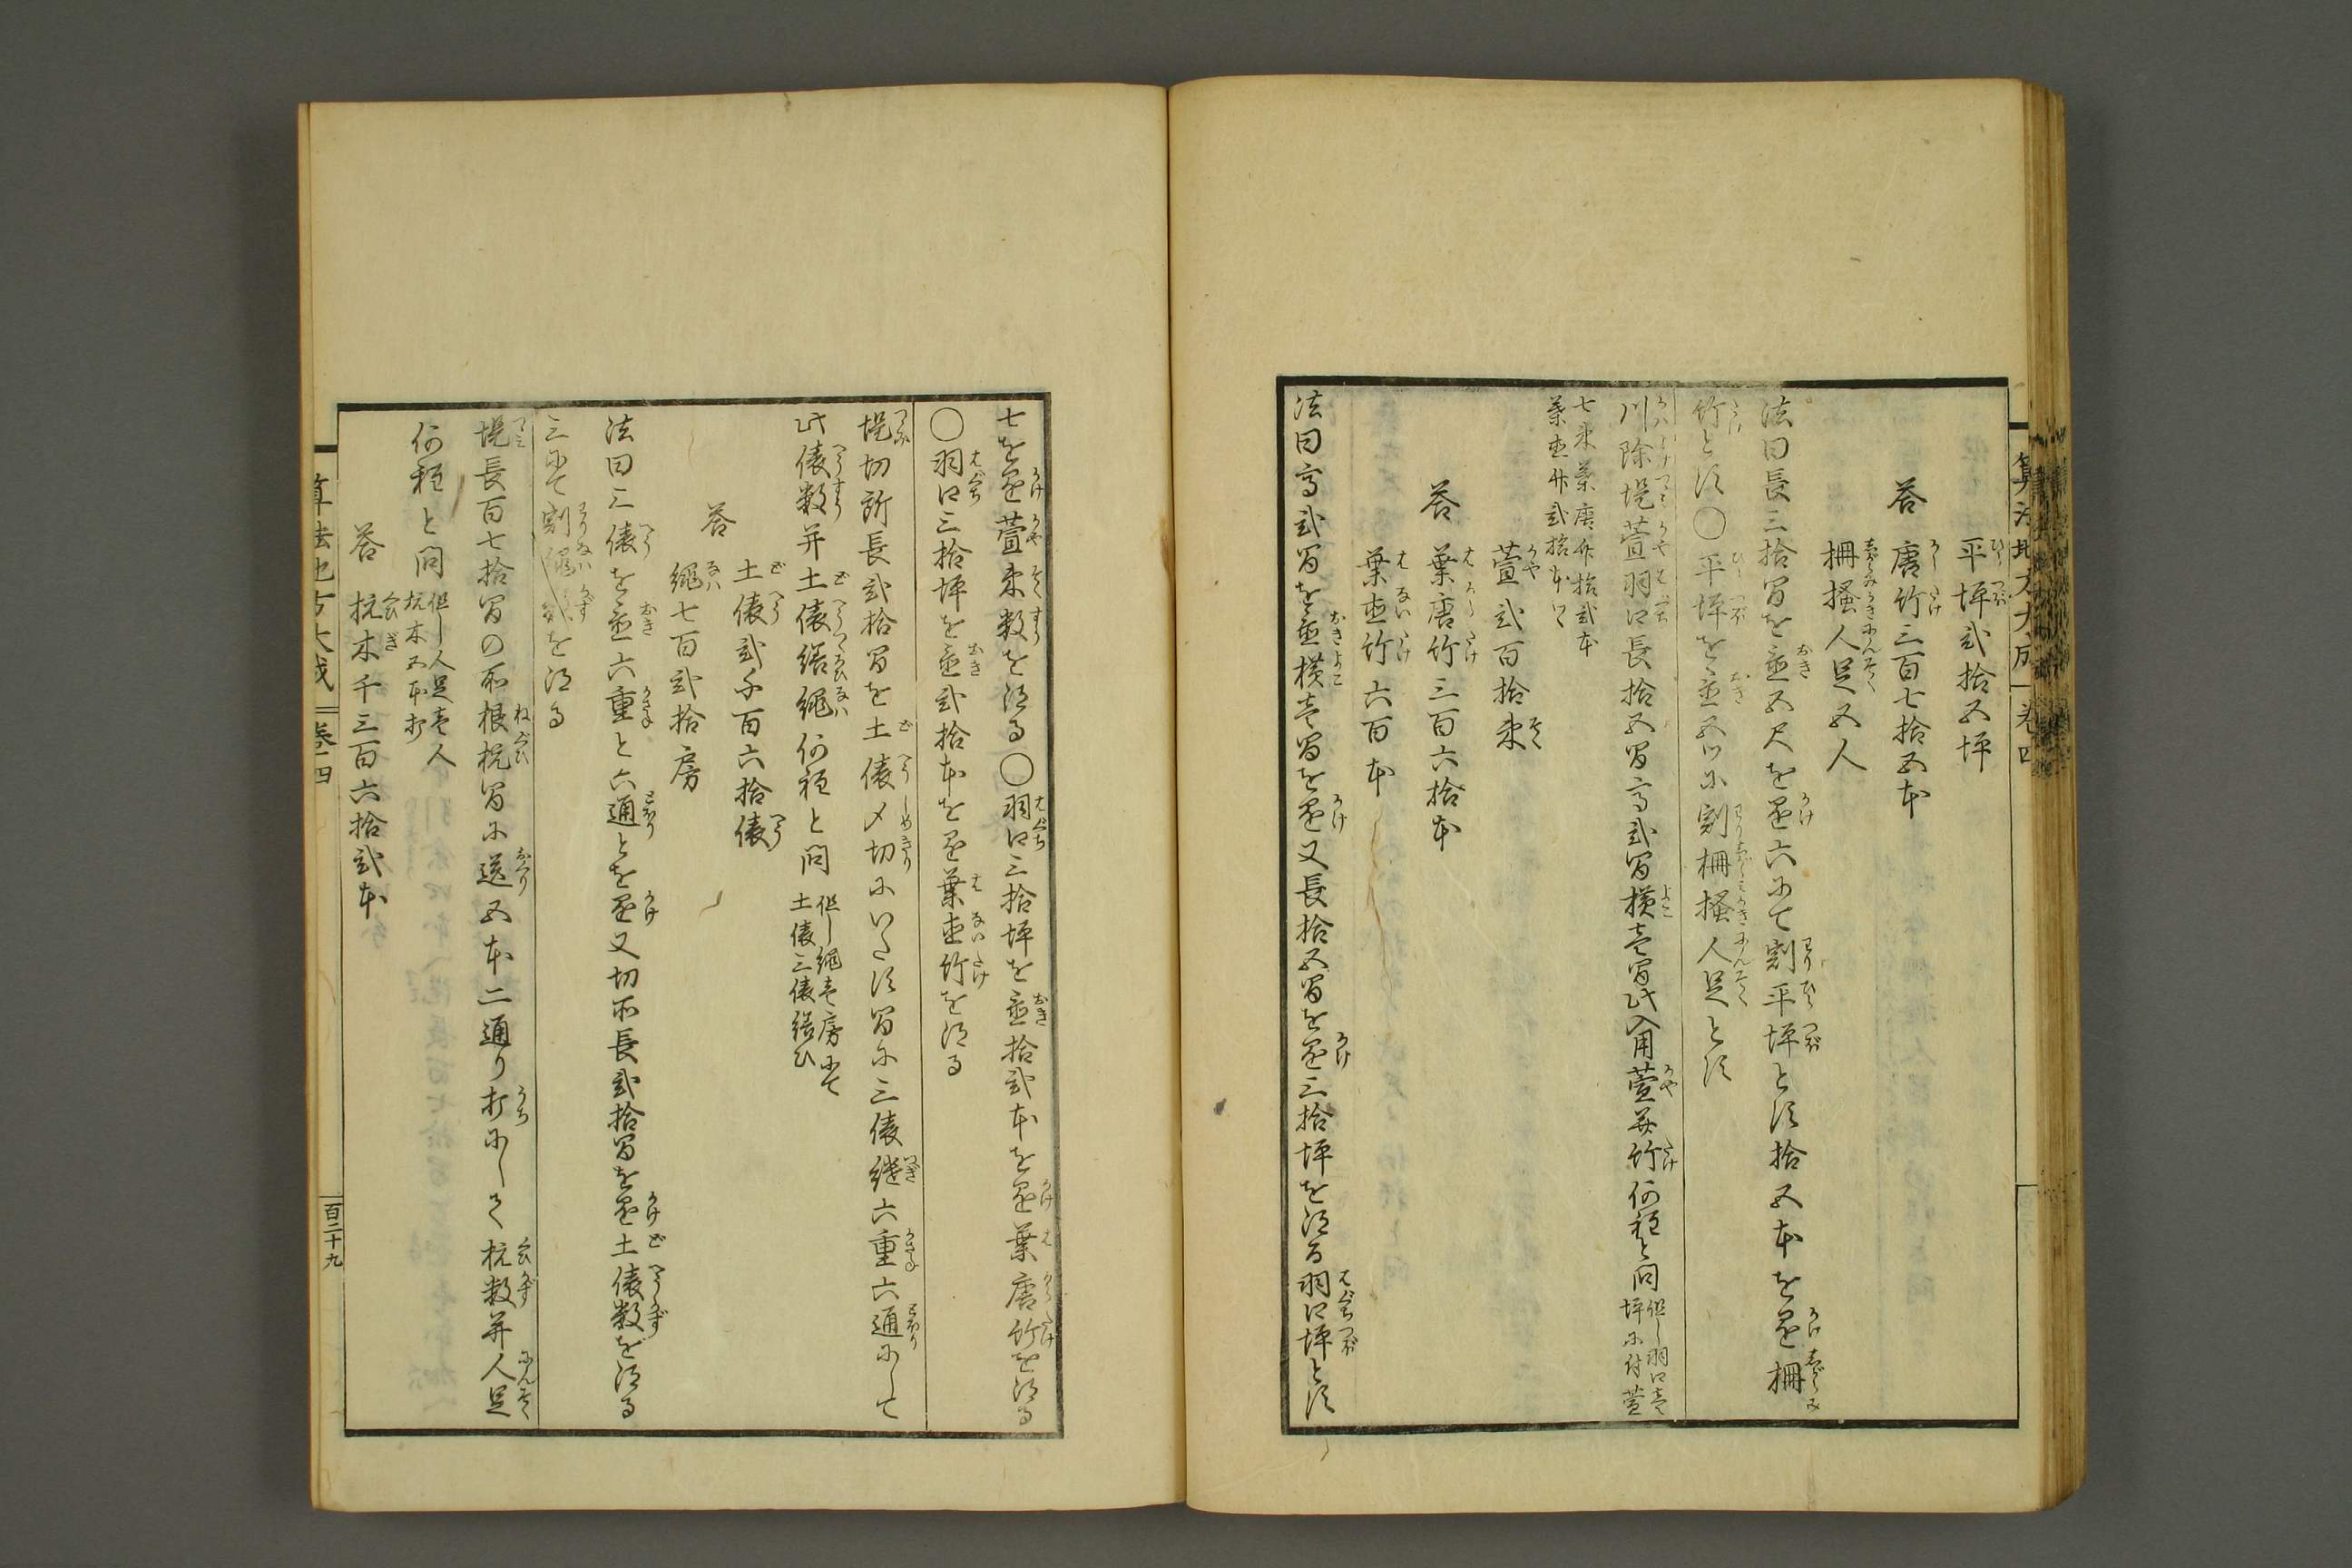 平坪弐拾五坪
答　唐竹三百七拾五本
柵掻人足五人
法曰長三拾間を置五尺を置六にて割平坪とす拾五本を置柵
竹とす〇平坪を置五ツに割柵掻人足とす
川除堤萱羽口長拾五間高弐間横壱間此入用萱并竹何程と問 但し羽口壱
坪に付萱
七束葉唐竹拾弐本
葉直竹弐拾本ツヽ
萱弐百拾束
答　葉唐竹三百六拾本
葉直竹六百本
法曰高弐間を置横壱間を置又長拾五間を置三拾坪を得る羽口坪とす
算法地方大成　巻四
七を置萱束数を得る〇羽口三拾坪を置拾弐本を置葉唐竹を得る
〇羽口三拾坪を置弐拾本を置葉直竹を得る
堤切所長弐拾間を土俵〆切にいたす間に三俵継六重六通にして
此俵数并土俵結縄何程と問 但し縄壱房にて
土俵三俵結ひ
土俵弐千百六拾俵
答
縄七百弐拾房
法曰三俵を置六重と六通とを置又切所長弐拾間を置土俵数を得る
三にて割縄数を得る
堤長百七拾間の所根杭間に送五本二通り打にして杭数并人足
何程と問 但し人足壱人
杭木五本打
答　杭木千三百六拾弐本
算法地方大成　巻四
百二十九